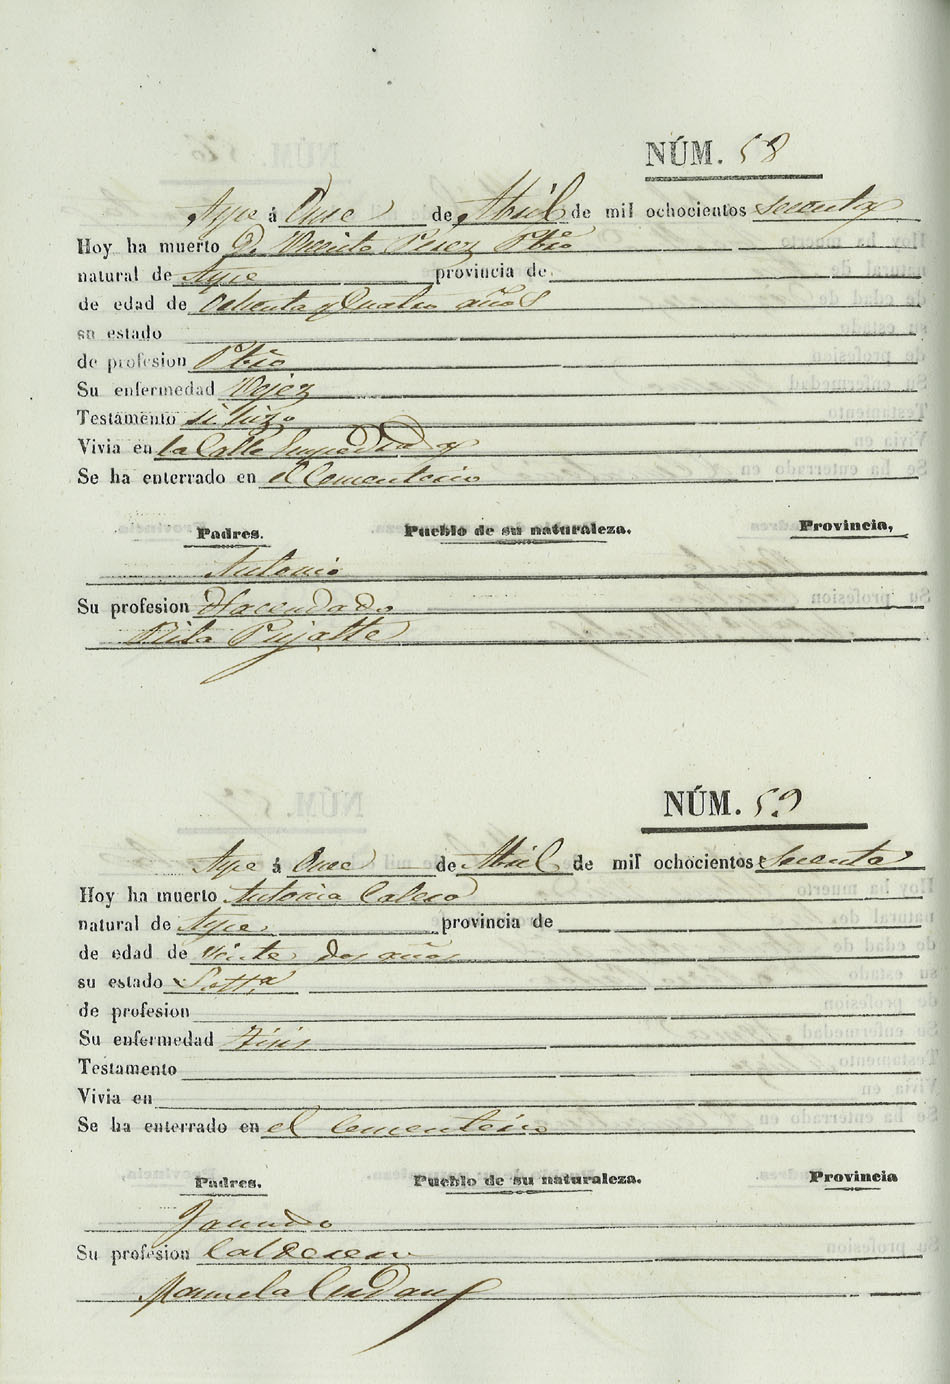 NÚM. 58
Aspe á Onse de Abril de mil ochocientos sesenta
Hoy ha muerto Dn Vicente Perez Pbro
natural de Aspe provincia de
de edad de Ochenta y Cuatro años
su estado
de profesion Pbro
Su enfermedad Vejez
Testamento si hizo
Vivia en la Calle
Se ha enterrado en el Cementerio
Padres. Pueblo de su naturaleza. Provincia,
Antonio
Su profesion Hacendado
Rita Pujalte
NÚM. 59
Aspe á Onse de Abril de mil ochocientos sesenta
Hoy ha muerto Antonia Calero
natural de Aspe provincia de
de edad de Veinte dos años
su estado Soltra
de profesion
Su enfermedad Tisis
Testamento
Vivia en
Se ha enterrado en el Cementerio
Padres. Pueblo de su naturaleza. Provincia
Su profesion Calderero
Manuela